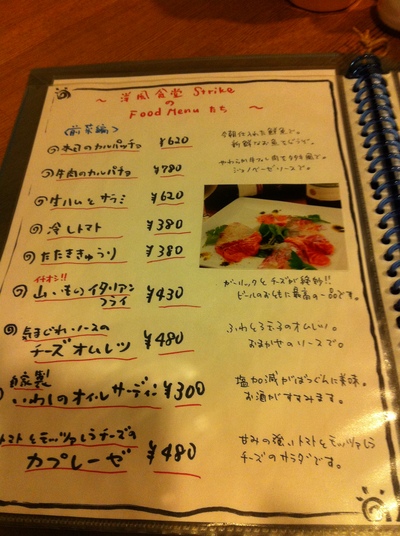 ～ 洋風食堂 Strike
の
Food Menu たち ～
(前菜編)
本日のカルパッチョ ¥620
牛肉のカルパチョ ¥780
生ハムとサラミ ¥620
冷しトマト ¥380
たたききゅうり ¥380
イチオシ!!
山いものイタリアン
フライ ¥430
気まぐれソースの
チーズオムレツ ¥480
自家製
いわしのオイルサーディン ¥300
トマトとモッツァレラチーズの
カプレーゼ ¥480
今朝に入れた鮮魚で。
新鮮なお魚をどうぞ。
やわらか牛ヒレ肉をタタキ風で。
ジェノベーゼソースで。
ガーリックとチーズが絶妙!!
ビールのお供に最高の一品です。
ふわふわ玉子のオムレツ。
おまかせのソースで。
塩加減がばつぐんに美味。
お酒がすすみます。
甘みの強いトマトとモッツァレラ
チーズのサラダです。